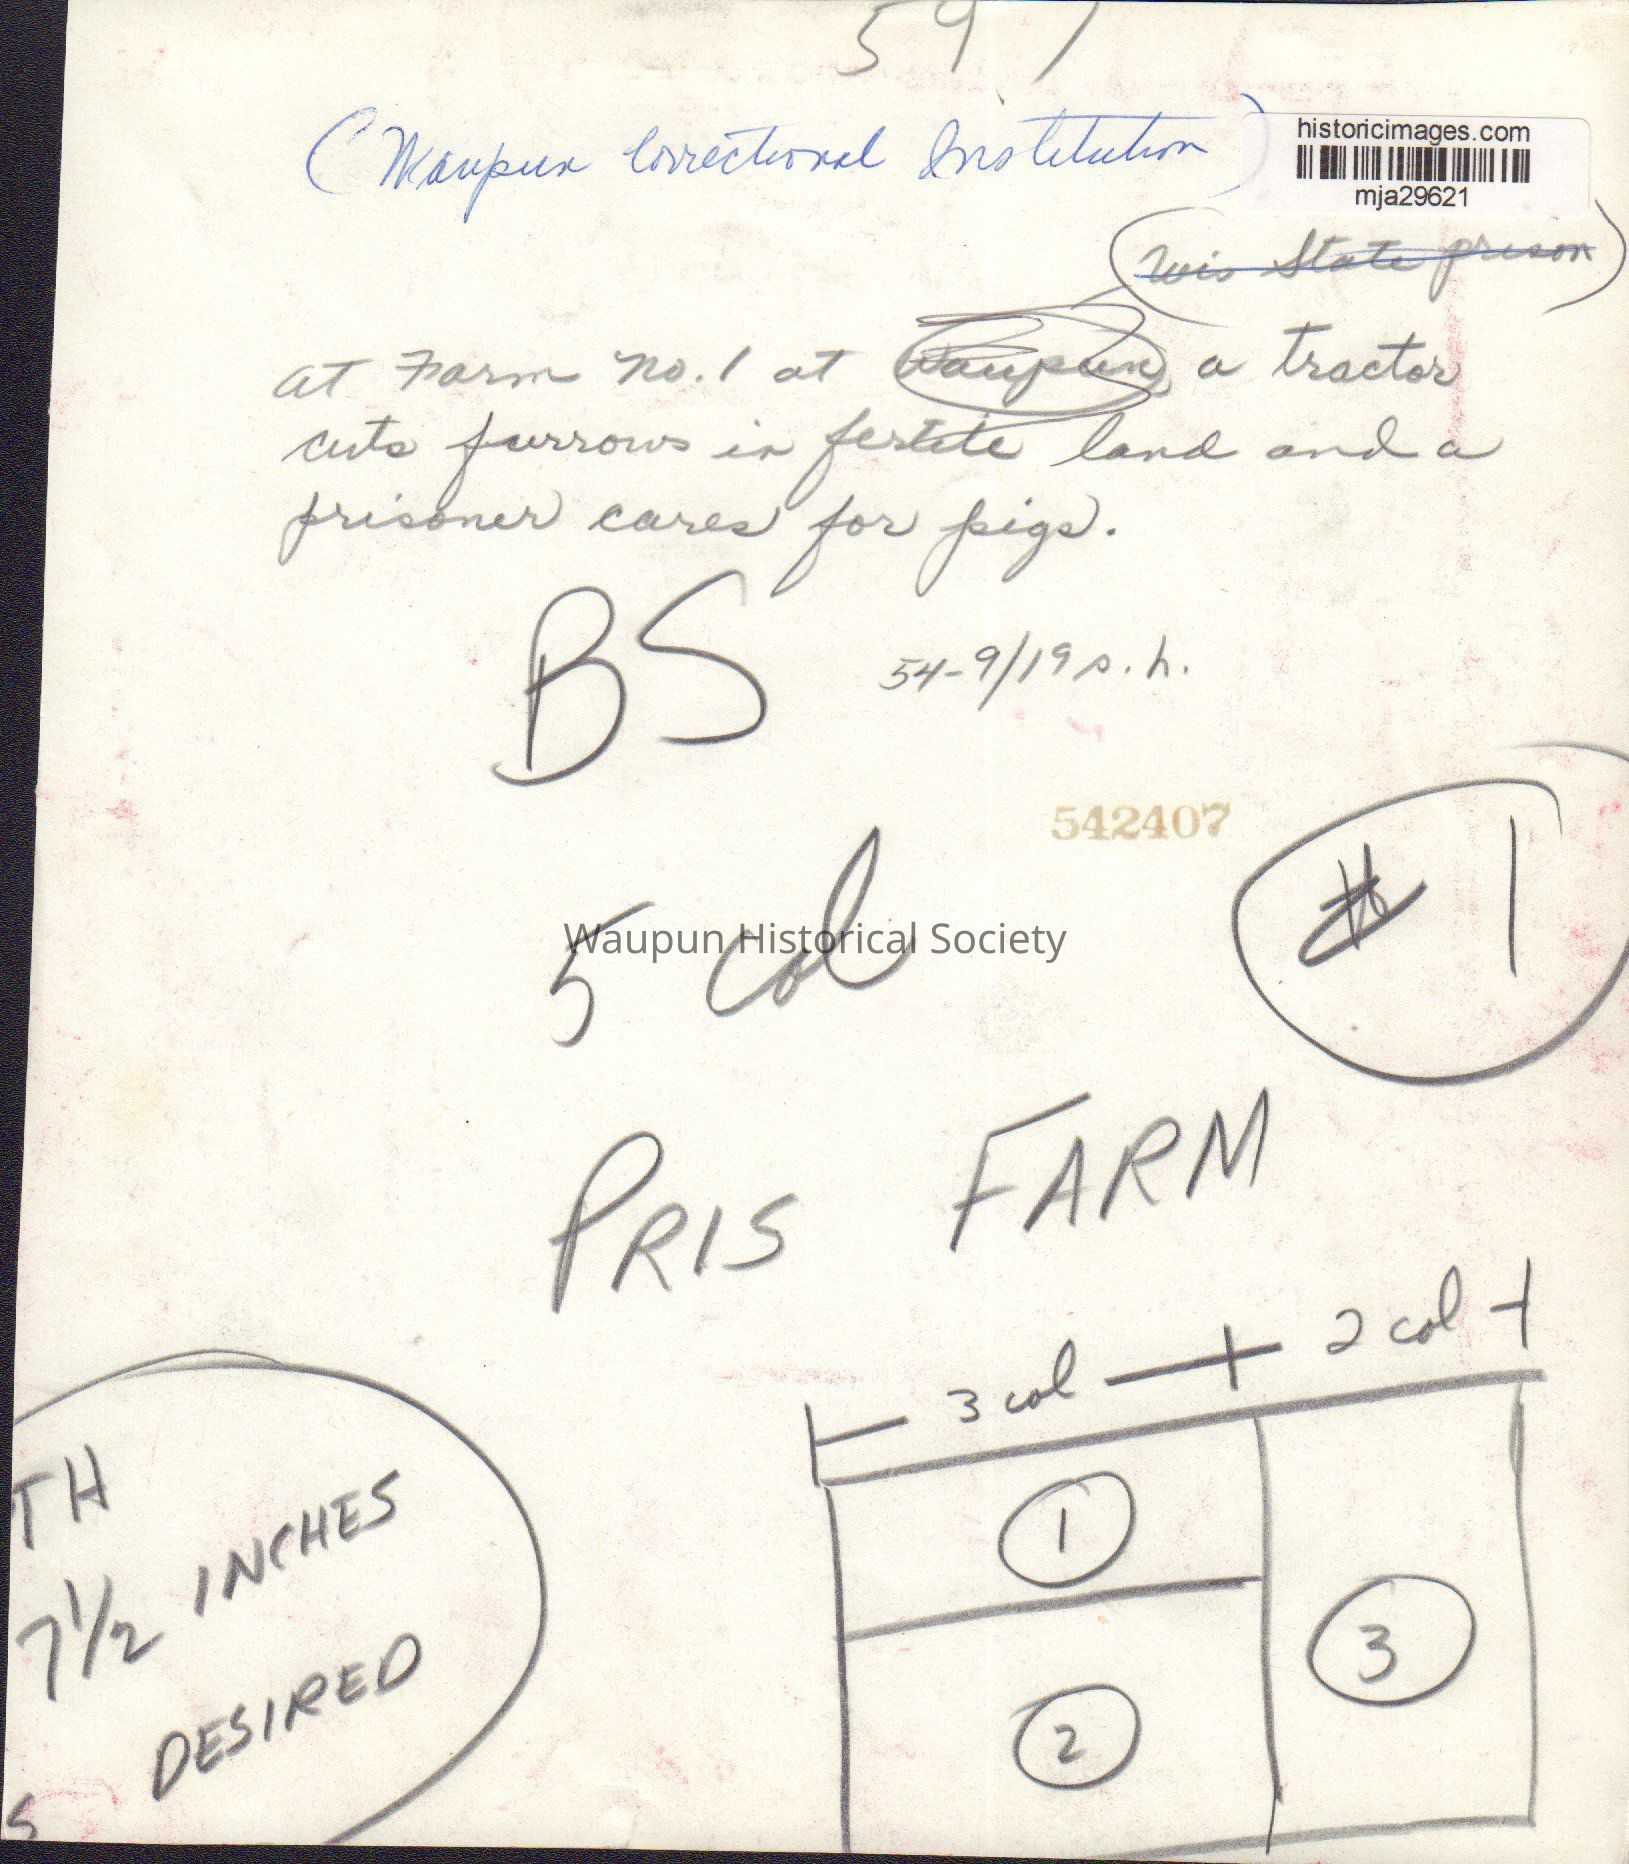 597
(Waupun Correctional Institution)
historicimages.com
mja29621
Wis State prison
at Farm No. 1 at Waupun, a tractor
cuts furrows in fertile land and a
prisoner cares for pigs.
BS
54-9/19 s.h.
542407
# 1
5 col
Waupun Historical Society
PRIS FARM
3 col 2 col
1
2
3
TH
7 1/2 INCHES
DESIRED
S